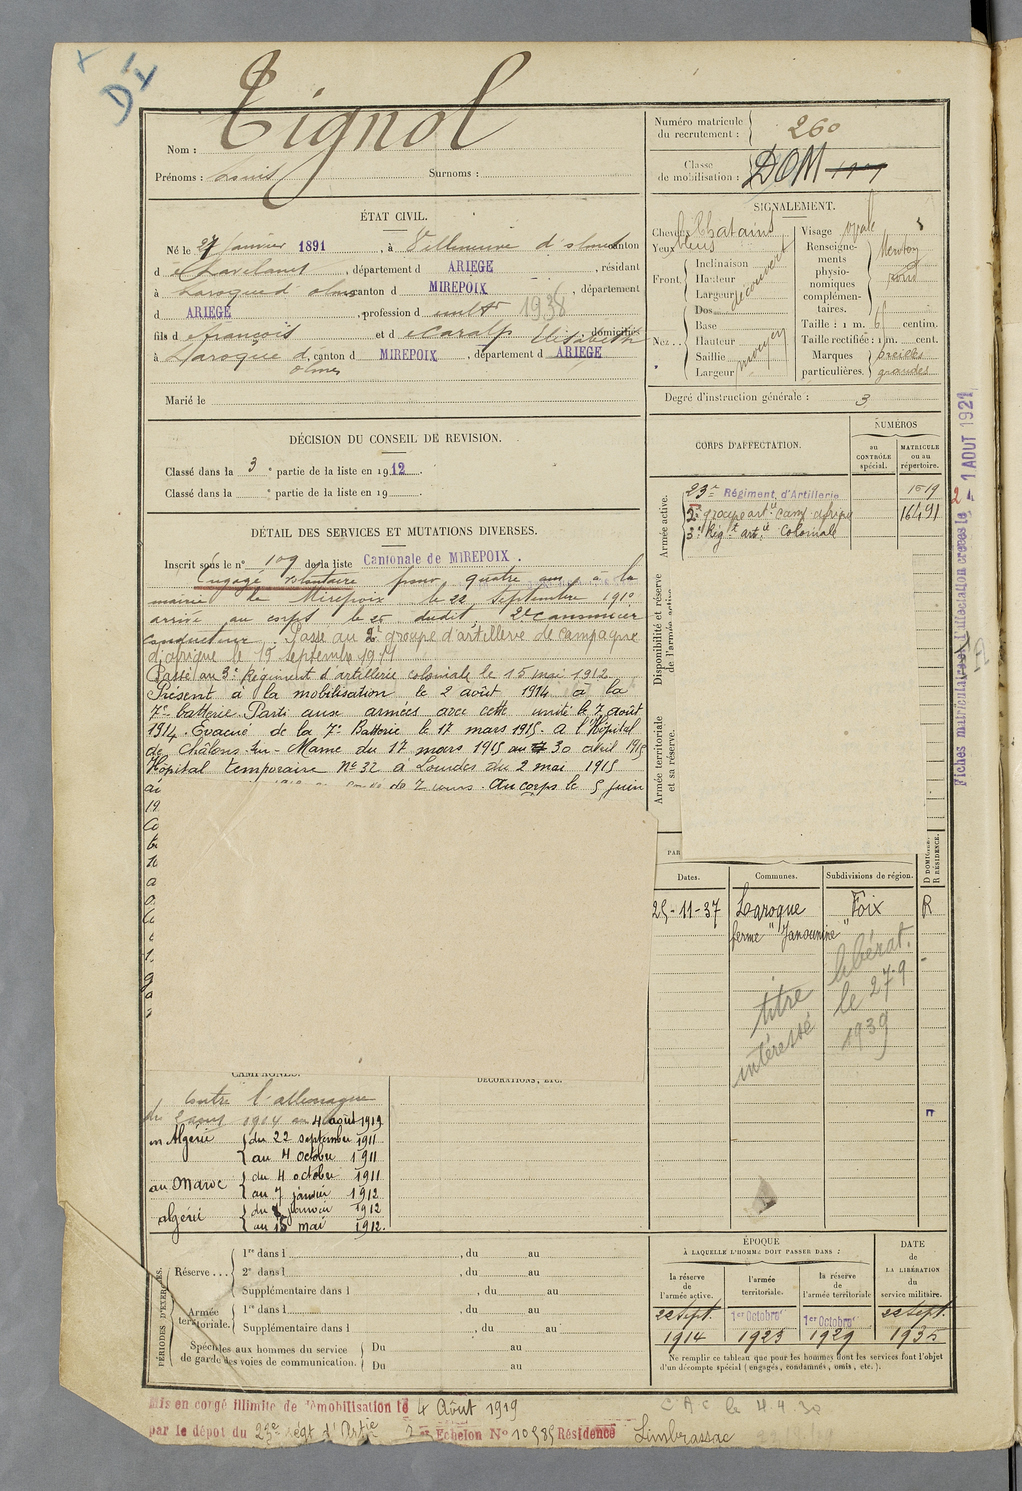 D
Nom : Tignol
Prénoms : Louis Surnoms :
Numéro matricule
du recrutement : 260
Classe
de mobilisation : DOM
ÉTAT CIVIL.
Né le 27 janvier 1891, à Villeneuve d'olmes canton
d , département d ARIEGE, résidant
à Laroque d'olmes canton d MIREPOIX, département
d ARIEGE, profession d 1938
fils d François et d Caralp Elisabeth domiciliés
à Laroque d' , canton d MIREPOIX, département d ARIEGE
olmes
Marié le
SIGNALEMENT.
Cheveux Chatains
Yeux bleus
Front. Inclinaison
Hauteur
Largeur
découvert
Nez. Dos
Base
Hauteur
Saillie
Largeur
moyen
Visage ovale
Renseigne-
ments
physio-
nomiques
complémen-
taires. Menton
rond
Taille : 1 m. 6 centim.
Taille rectifiée : 1 m. cent.
Marques
particulières. oreilles
grandes
Degré d'instruction générale : 3
DÉCISION DU CONSEIL DE REVISION.
Classé dans la 3e partie de la liste en 1912.
Classé dans la e partie de la liste en 19
DÉTAIL DES SERVICES ET MUTATIONS DIVERSES.
Inscrit sous le n° 109 de la liste Cantonale de MIREPOIX.
Engagé volontaire pour quatre ans à la
mairie de Mirepoix le 22 Septembre 1910
arrivé au corps le 25 dudit 2e canonnier
conducteur. Passé au 2e groupe d'artillerie de campagne
d'afrique le 15 septembre 1911
Passé au 3e Régiment d'artillerie coloniale le 15 mai 1912
Présent à la mobilisation le 2 août 1914 à la
7e batterie. Parti aux armées avec cette unité le 7 août
1914. Évacué de la 7e Batterie le 17 mars 1915. à l'Hôpital
de Châlons-sur-Marne du 17 mars 1915 au 30 avril 1915
Hôpital temporaire N° 32 à Lourdes du 2 mai 1915
de 7 jours. Au corps le 5 juin
19
CORPS D'AFFECTATION.
NUMÉROS
au
CONTRÔLE
spécial.
MATRICULE
ou au
répertoire.
Armée active.
23e Régiment d'Artillerie 1519
2e groupe artie camp. afrique 16491
3e Régt artie Coloniale
Disponibilité et réserve
de l'armée active
Armée territoriale
et sa réserve.
Fiches matricules et d'affectation créées le 2 - 1 AOUT 1921
PAR
Dates. Communes. Subdivisions de région. D DOMICILE. R RÉSIDENCE.
25-11-37 Laroque Foix R
ferme "Janounine"
libérat.
titre le 27-9
intéressé 1939
CAMPAGNES.
DÉCORATIONS, ETC.
Contre l'allemagne
du 2 août 1914 au 4 août 1919
en Algérie du 22 septembre 1911
au 4 octobre 1911
au Maroc du 4 octobre 1911
au 7 janvier 1912
algérie du 8 janvier 1912
au 15 mai 1912.
PÉRIODES D'EXERCICES.
Réserve... 1re dans l , du au
2e dans l , du au
Supplémentaire dans l , du au
Armée
territoriale. 1re dans l , du au
Supplémentaire dans l , du au
Spéciales aux hommes du service
de garde des voies de communication. Du au
Du au
ÉPOQUE
À LAQUELLE L'HOMME DOIT PASSER DANS :
la réserve
de
l'armée active.
l'armée
territoriale.
la réserve
de
l'armée territoriale
DATE
de
LA LIBÉRATION
du
service militaire.
22 Sept. 1er Octobre 1er Octobre 22 Sept.
1914 1925 1929 1935
Ne remplir ce tableau que pour les hommes dont les services font l'objet
d'un décompte spécial (engagés, condamnés, omis, etc.).
Mis en congé illimité de démobilisation le 4 Août 1919
par le dépot du 23e Régt d'Artie 2e Echelon N° 10585 Résidence Limbrassac
C A C le 4.4.30